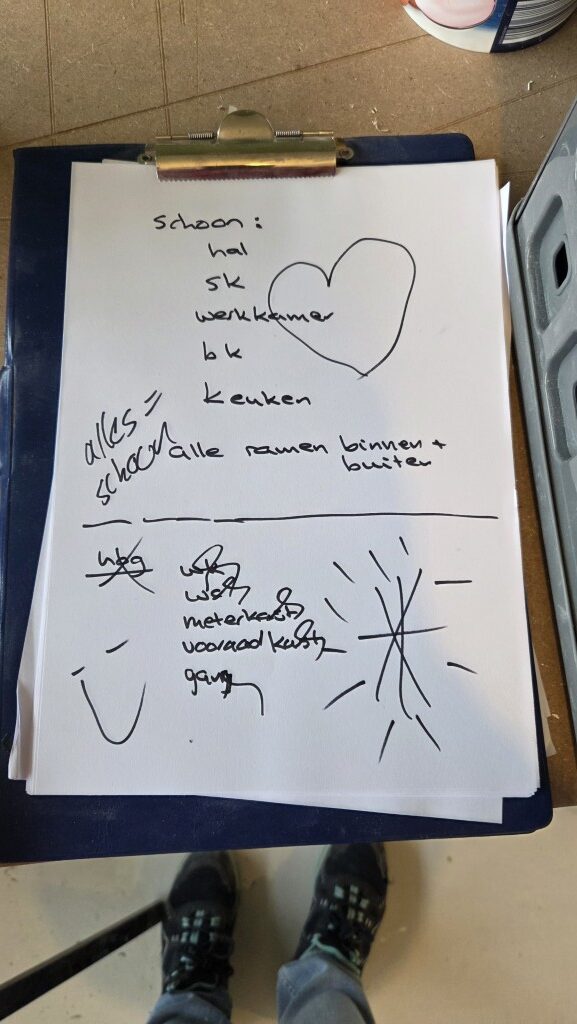 schoon:
hal
sk
werkkamer
bk
keuken
alles =
schoon
alle ramen binnen +
buiten
meterkast
vooraadkast
gang